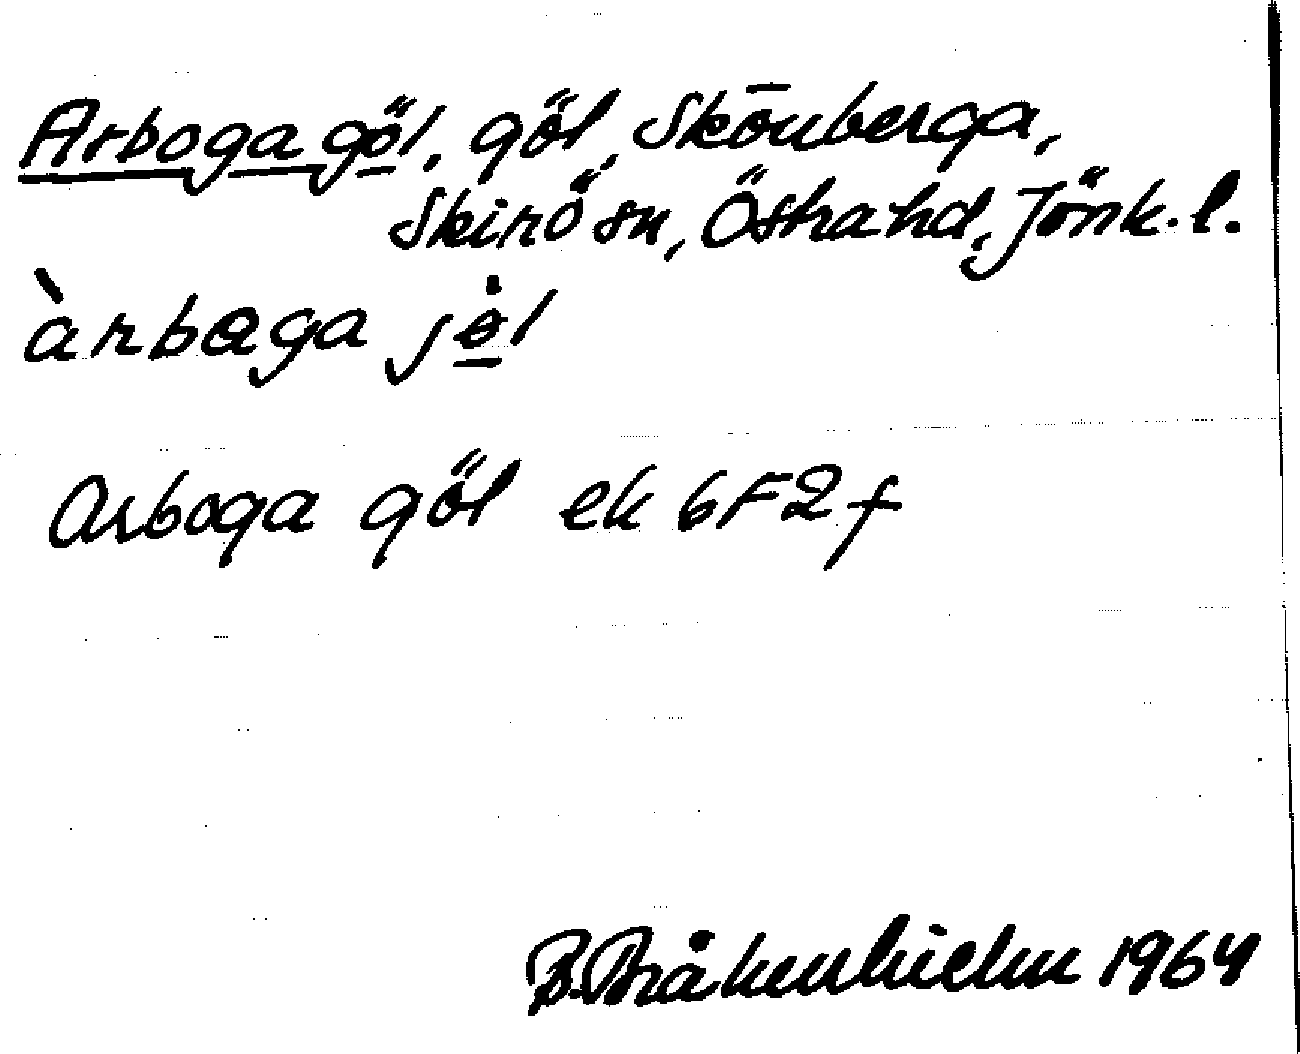 Arboga göl, göl, Skönberga,
Skirö sn, Östra hd, Jönk. l.
àrbaga jö̀l
Arboga göl ek 6F2f
B. Bråkenhielm 1964